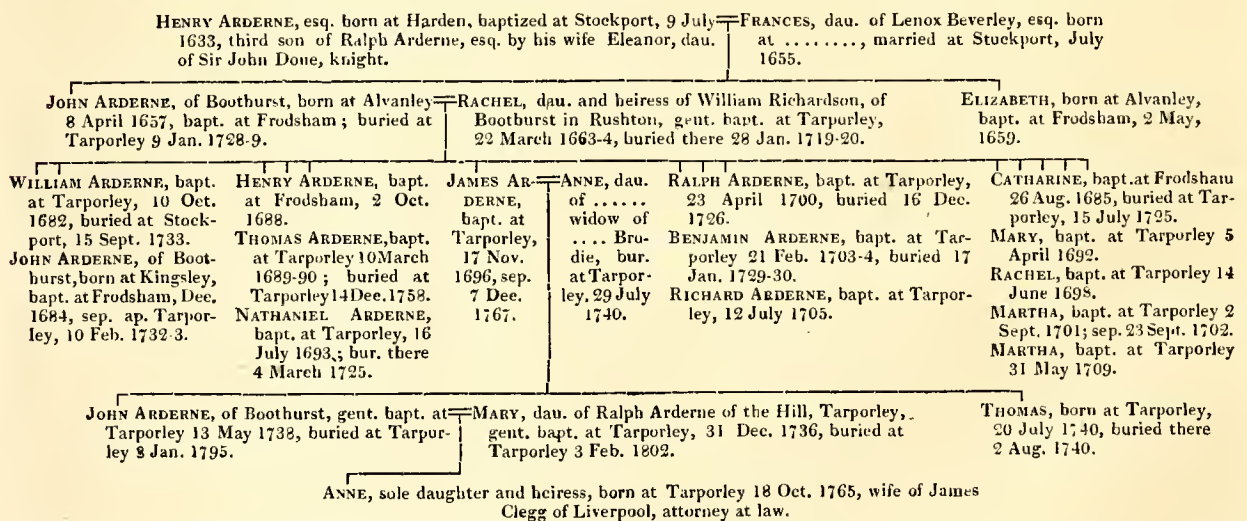 HENRY ARDERNE, esq. born at Harden, baptized at Stockport, 9 July
1633, third son of Ralph Arderne, esq. by his wife Eleanor, dau.
of Sir John Done, knight.
FRANCES, dau. of Lenox Beverley, esq. born
at ........, married at Stockport, July
1655.
JOHN ARDERNE, of Boothurst, born at Alvanley
8 April 1657, bapt. at Frodsham; buried at
Tarporley 9 Jan. 1728-9.
RACHEL, dau. and heiress of William Richardson, of
Bootburst in Rushton, gent. bapt. at Tarporley,
22 March 1663-4, buried there 28 Jan. 1719-20.
ELIZABETH, born at Alvanley,
bapt. at Frodsham, 2 May,
1659.
WILLIAM ARDERNE, bapt.
at Tarporley, 10 Oct.
1682, buried at Stock-
port, 15 Sept. 1733.
JOHN ARDERNE, of Boot-
hurst, born at Kingsley,
bapt. at Frodsham, Dec.
1684, sep. ap. Tarpor-
ley, 10 Feb. 1732-3.
HENRY ARDERNE, bapt.
at Frodsham, 2 Oct.
1688.
THOMAS ARDERNE, bapt.
at Tarporley 10 March
1689-90; buried at
Tarporley 14 Dec. 1758.
NATHANIEL ARDERNE,
bapt. at Tarporley, 16
July 1693,; bur. there
4 March 1725.
JAMES AR-
DERNE,
bapt. at
Tarporley,
17 Nov.
1696, sep.
7 Dec.
1767.
ANNE, dau.
of ......
widow of
.... Bru-
die, bur.
at Tarpor-
ley, 29 July
1740.
RALPH ARDERNE, bapt. at Tarporley,
23 April 1700, buried 16 Dec.
1726.
BENJAMIN ARDERNE, bapt. at Tar-
porley 21 Feb. 1703-4, buried 17
Jan. 1729-30.
RICHARD ARDERNE, bapt. at Tarpor-
ley, 12 July 1705.
CATHARINE, bapt. at Frodsham
26 Aug. 1685, buried at Tar-
porley, 15 July 1725.
MARY, bapt. at Tarporley 5
April 1692.
RACHEL, bapt. at Tarporley 14
June 1698.
MARTHA, bapt. at Tarporley 2
Sept. 1701; sep. 23 Sept. 1702.
MARTHA, bapt. at Tarporley
31 May 1709.
JOHN ARDERNE, of Boothurst, gent. bapt. at
Tarporley 13 May 1738, buried at Tarpor-
ley 8 Jan. 1795.
MARY, dau. of Ralph Arderne of the Hill, Tarporley,
gent. bapt. at Tarporley, 31 Dec. 1736, buried at
Tarporley 3 Feb. 1802.
THOMAS, born at Tarporley,
20 July 1740, buried there
2 Aug. 1740.
ANNE, sole daughter and heiress, born at Tarporley 18 Oct. 1765, wife of James
Clegg of Liverpool, attorney at law.